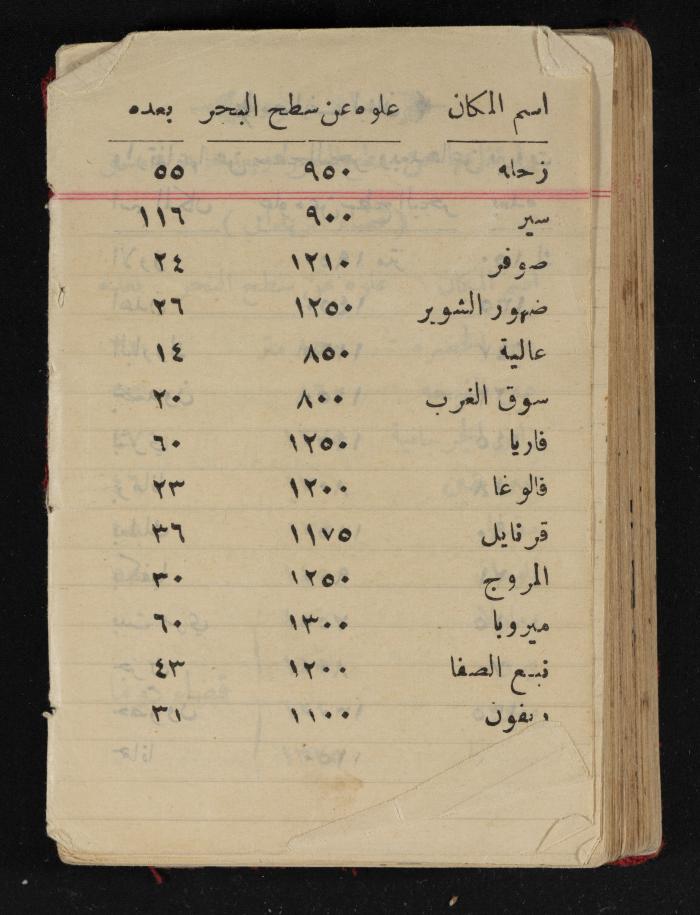 اسم المكان علوه عن سطح البحر بعده
زحله ٩٥٠ ٥٥
سير ٩٠٠ ١١٦
صوفر ١٢١٠ ٢٤
ضهور الشوير ١٢٥٠ ٢٦
عالية ٨٥٠ ١٤
سوق الغرب ٨٠٠ ٢٠
فاريا ١٢٥٠ ٦٠
فالوغا ١٢٠٠ ٢٣
قرنايل ١١٧٥ ٣٦
المروج ١٢٥٠ ٣٠
ميروبا ١٣٠٠ ٦٠
نبع الصفا ١٢٠٠ ٤٣
ريفون ١١٠٠ ٣١